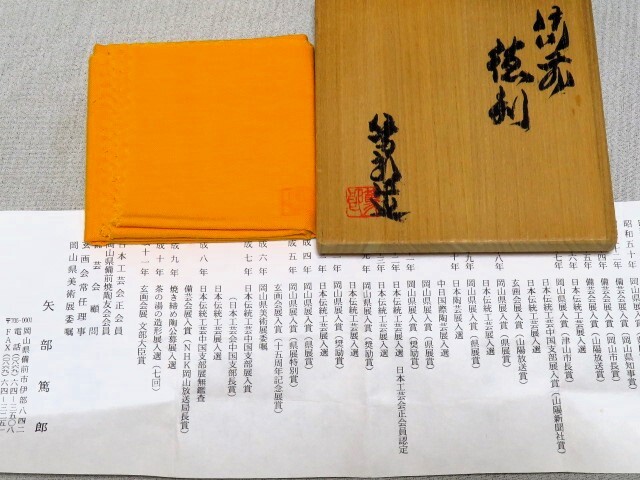 備前
徳利
篤郎造
昭和五十
日本伝統工芸展入選
岡山県展入賞(岡山県知事賞)
備芸会展入賞(岡山市長賞)
備芸会展入賞(山陽放送賞)
日本伝統工芸中国支部展入賞(山陽新聞社賞)
岡山県展入賞(津山市長賞)
日本伝統工芸展入選
玄画会展入賞(山陽放送賞)
岡山県展入賞(県展賞)
日本陶芸展入選
中日国際陶芸展入選
岡山県展入賞(県展賞)
岡山県展入賞(奨励賞)
日本伝統工芸展入選 日本工芸会正会員認定
日本伝統工芸展入選
岡山県展入賞(奨励賞)
日本伝統工芸展入選
成四年 岡山県展入賞(県展賞)
成五年 岡山県展入賞(県展特別賞)
玄画会展入賞(十五周年記念展賞)
成六年 岡山県美術展委嘱
成七年 日本伝統工芸中国支部展入賞
(日本工芸会中国支部長賞)
日本伝統工芸展入選
成八年 日本伝統工芸中国支部展無鑑査
備芸会展入賞(NHK岡山放送局長賞)
成九年 焼き締め陶公募展入選
成十年 茶の湯の造形展入選(七回)
成十一年 玄画会展 文部大臣賞
日本工芸会正会員
岡山県備前焼陶友会会員
備芸会顧問
玄画会常任理事
岡山県美術展委嘱
矢部篤郎
〒705-0001 岡山県備前市伊部八四二